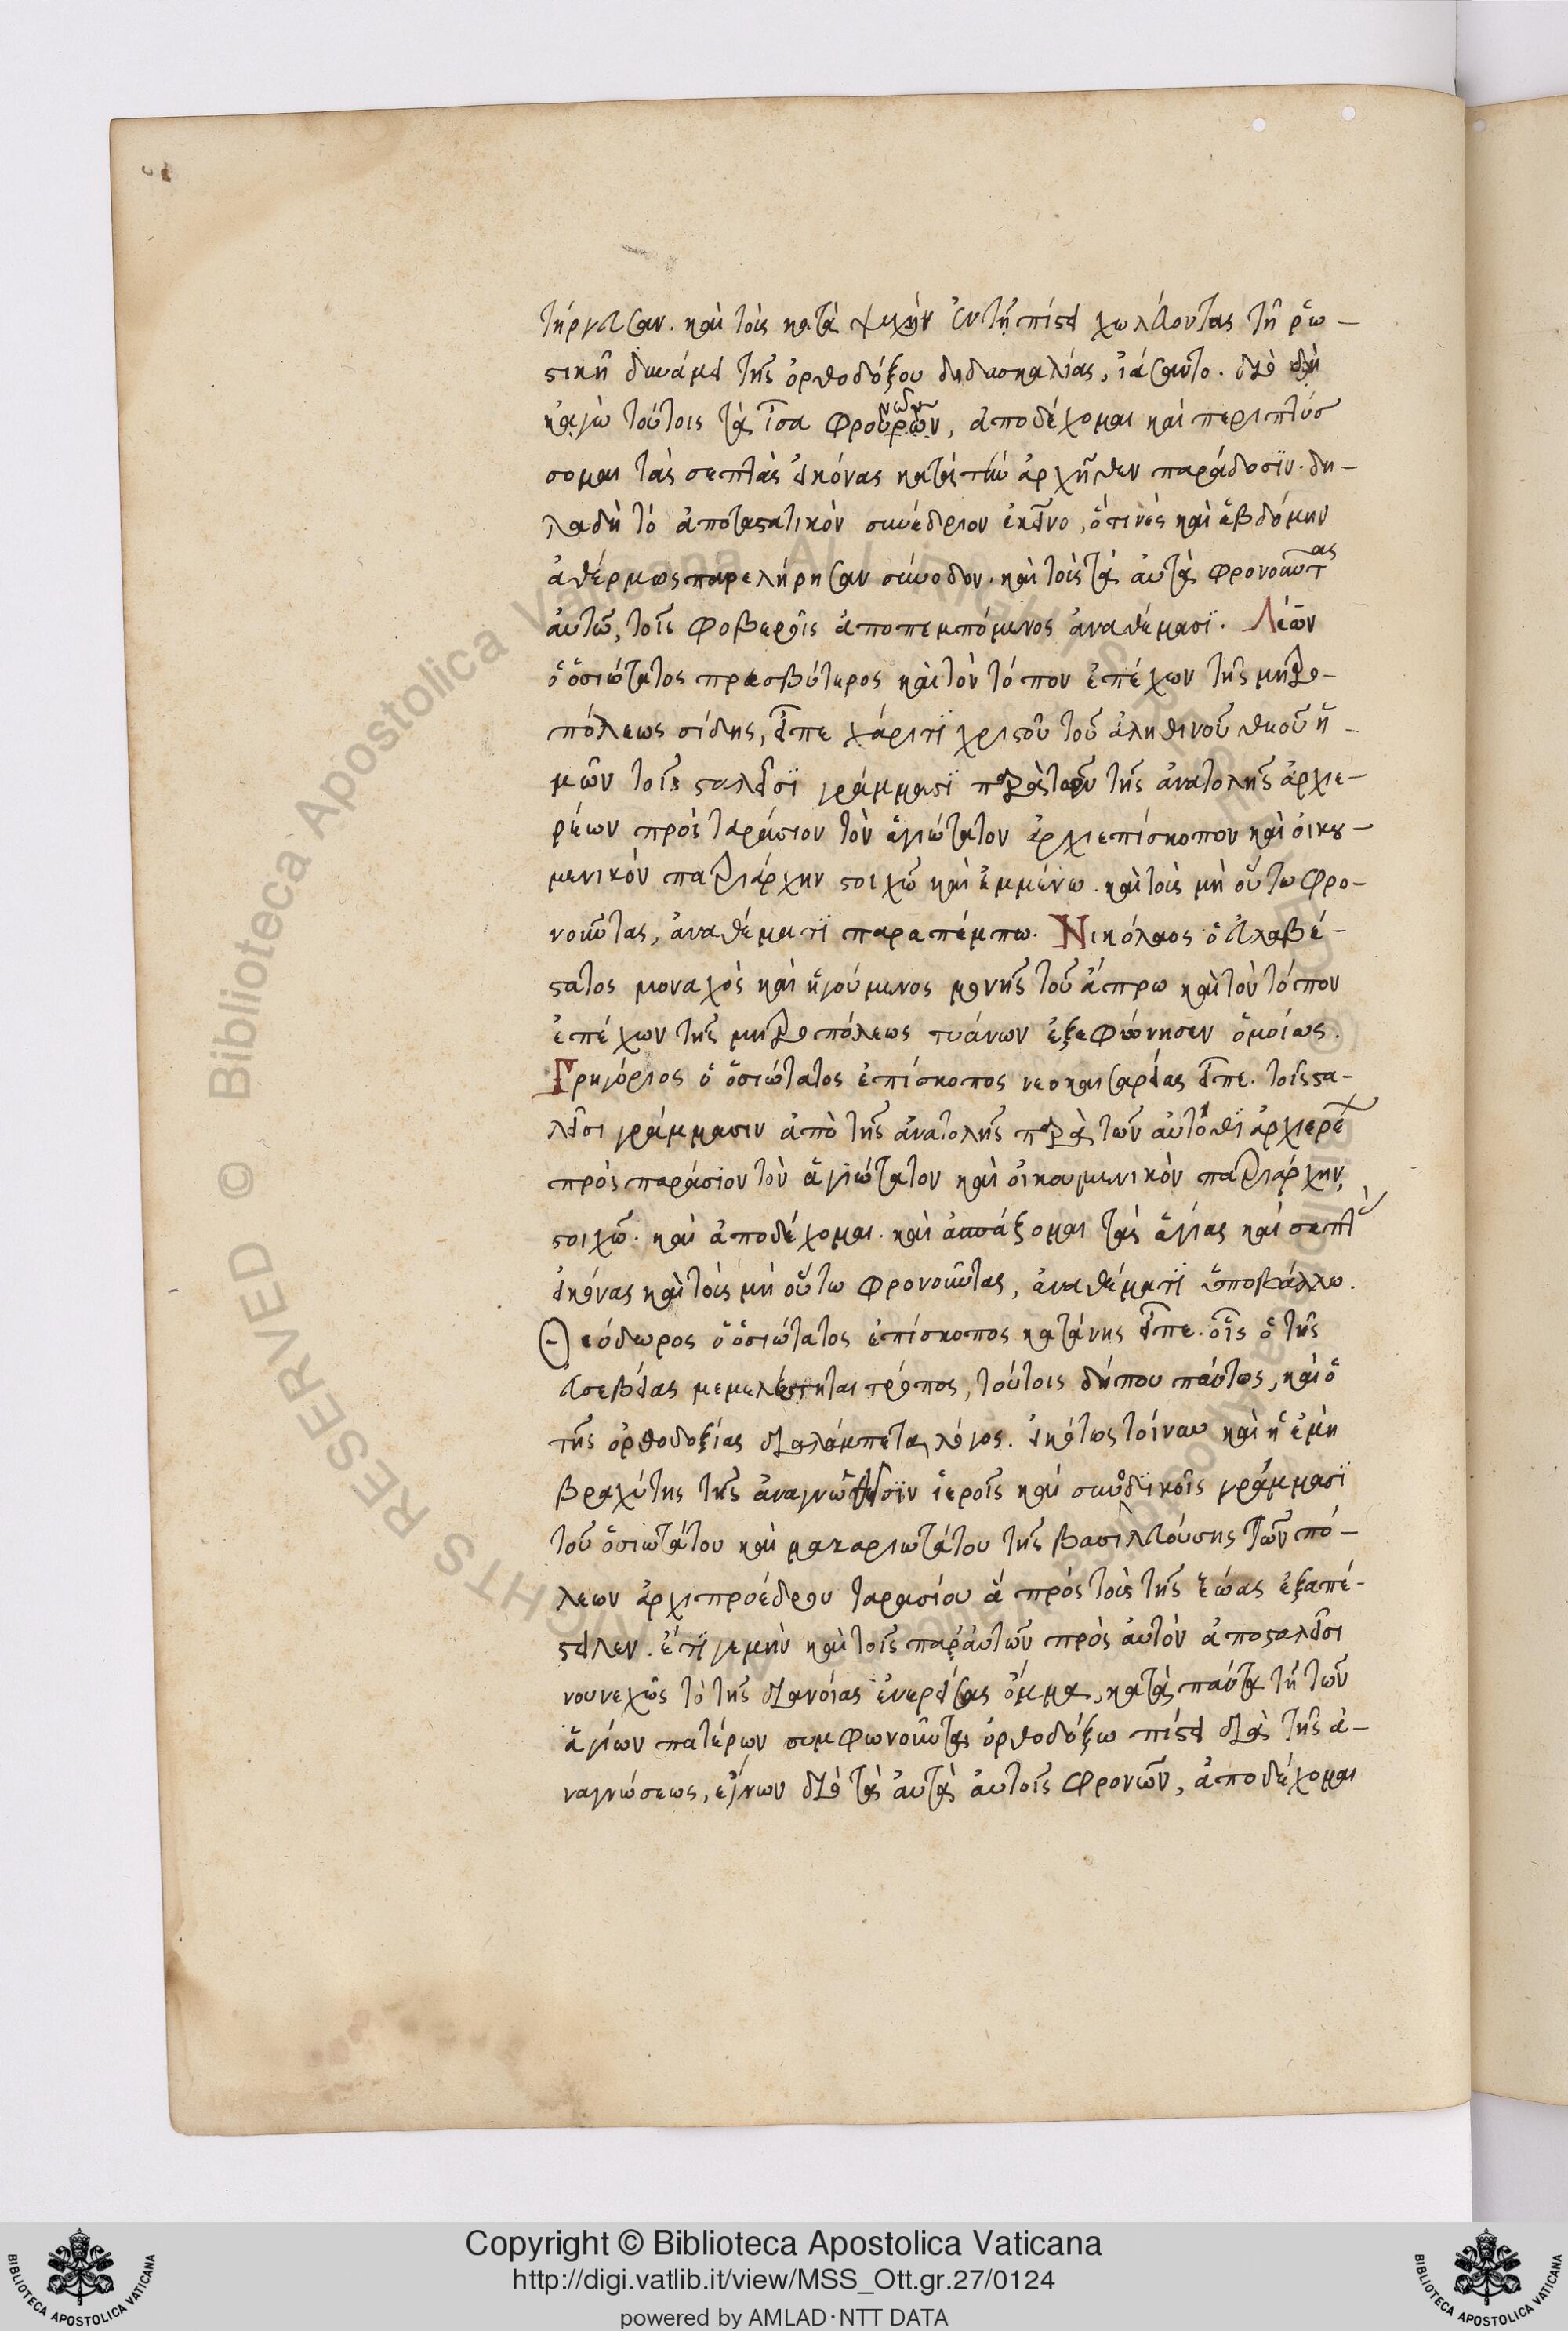 τήργησαν. καὶ τοὺς κατὰ ψυχὴν ἐν τῆ πίστει χωλεύοντας τῆ ῥω-
στικῆ δυνάμει τῆς ὀρθοδόξου διδασκαλίας, ἰάσαντο. διὸ δὴ
κἀγὼ τούτοις τὰ ἴσα φρονῶν, ἀποδέχομαι καὶ περιπτύσ
σομαι τὰς σεπτὰς εἰκόνας κατὰ τὴν ἀρχῆθεν παράδοσϊν. δη-
λαδὴ τὸ ἀποστατικὸν συνέδριον ἐκεῖνο, ὅ τινὲς καὶ ἑβδόμην
ἀθέρμως παρελήρησαν σύνοδον. καὶ τοὺς τὰ αὐτὰ φρονοῦντας
αὐτῶ, τοῖς φοβεροῖς ἀποπεμπόμενος ἀναθέμασϊ. Λέων
ὁ ὁσιώτατος πρεσβύτερος καὶ τὸν τόπον ἐπέχων τῆς μητρο-
πόλεως σίδης, εἶπε χάριτϊ χριστοῦ τοῦ ἀληθινοῦ θεοῦ ἡ-
μῶν τοῖς σταλεῖσϊ γράμμασϊ παρὰ τῶν τῆς ἀνατολῆς ἀρχιε-
ρέων πρὸς ταράσιον τὸν ἁγιώτατον ἀρχιεπίσκοπον καὶ οἰκου-
μενικὸν πατριάρχην στοιχῶ καὶ ἐμμένω. καὶ τοὺς μὴ οὕτω φρο-
νοῦντας, ἀναθέματϊ παραπέμπω. Νικόλαος ὁ εὐλαβέ-
στατος μοναχὸς καὶ ἡγούμενος μονῆς τοῦ ἄπρω καὶ τὸν τόπον
ἐπέχων τῆς μητροπόλεως τυάνων ἐξεφώνησεν ὁμοίως.
Γρηγόριος ὁ ὁσιώτατος ἐπίσκοπος νεοκαισαρείας εἶπε. τοῖς στα-
λεῖσι γράμμασιν ἀπὸ τῆς ἀνατολῆς παρὰ τῶν αὐτόθϊ ἀρχιερέων
πρὸς παράσιον τὸν ἁγιώτατον καὶ οἰκουμενικὸν πατριάρχην,
στοιχῶ. καὶ ἀποδέχομαι. καὶ ἀσπάζομαι τὰς ἁγίας καὶ σεπτὰς
εἰκόνας καὶ τοὺς μὴ οὕτω φρονοῦντας, ἀναθέματϊ ὑποβάλλω.
Θεόδωρος ὁ ὁσιώτατος ἐπίσκοπος κατάνης εἶπε. οἷς ὁ τῆς
εὐσεβείας μεμελέτηται τρόπος, τούτοις δήπου πάντως, καὶ ὁ
τῆς ὀρθοδοξίας διαλάμπεται λόγος. εἰκότως τοίνυν καὶ ἡ ἐμὴ
βραχύτης τῆς ἀναγνωσθεῖσϊν ἱεροῖς καὶ συνοδϊκοῖς γράμμασϊ
τοῦ ὁσιωτάτου καὶ μακαριωτάτου τῆς βασιλευούσης τῶν πό-
λεων ἀρχιπροέδρου ταρασίου ἃ πρὸς τοὺς τῆς ἑώας ἐξαπέ-
στειλεν. ἔτϊ γε μὴν καὶ τοῖς παρ' αὐτῶν πρὸς αὐτὸν ἀποσταλεῖσι
νουνεχῶς τὸ τῆς διανοίας ἐνερείσας ὄμμα, κατὰ πάντα τῆ τῶν
ἁγίων πατέρων συμφωνοῦντα ὀρθοδόξω πίστει διὰ τῆς ἀ-
ναγνώσεως, ἔγνων διὸ τὰ αὐτὰ αὐτοῖς φρονῶν, ἀποδέχομαι
Copyright © Biblioteca Apostolica Vaticana
http://digi.vatlib.it/view/MSS_Ott.gr.27/0124
powered by AMLAD·NTT DATA